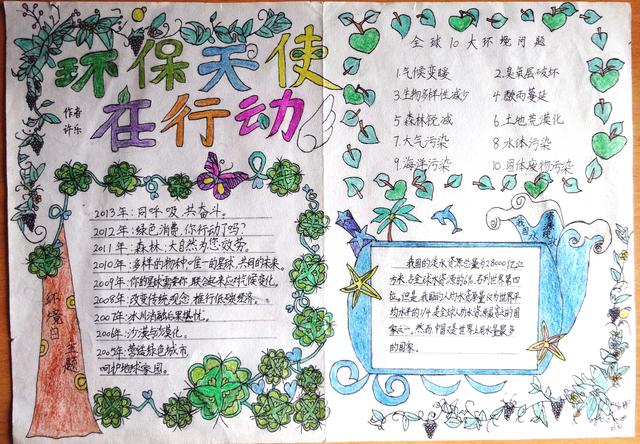 环保天使
在行动
作者
许乐
2013年:同呼吸,共奋斗。
2012年:绿色消费,你行动了吗?
2011年:森林:大自然为您效劳。
2010年:多样的物种,唯一的星球,共同的未来。
2009年:你的星球需要你,联合起来应对气候变化。
2008年:改变传统观念 推行低碳经济。
2007年:冰川消融后果堪忧。
2006年:沙漠与沙漠化。
2005年:营造绿色城市
呵护地球家园。
环境日 主题
全球10大环境问题
1.气候变暖
2.臭氧层破坏
3.生物多样性减少
4.酸雨蔓延
5.森林锐减
6.土地荒漠化
7.大气污染
8.水体污染
9.海洋污染
10.固体废物污染
我国的淡水资源总量为28000亿立
方米,占全球水资源的6%,名列世界第四
位。但是,我国的人均水资源量仅为世界平
均水平的1/4,是全球人均水资源最贫乏的国
家之一。然而,中国又是世界上用水量最多
的国家。